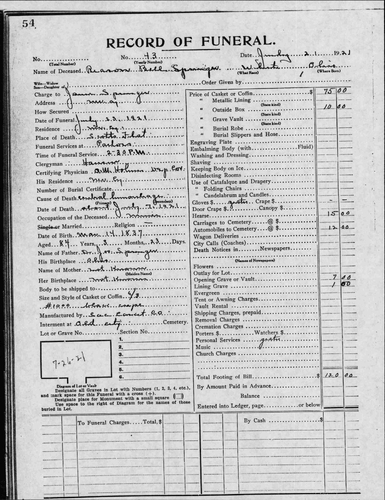 54
RECORD OF FUNERAL.
No. No. 43 Date July 21 1921
(Total Number) (Yearly Number)
Name of Deceased Reason Bell Springer White Ohio
(What Race) (Where Born)
Wife—Widow
Son—Daughter
Order Given by
Charge to Springer
Address
How Secured
Date of Funeral July 23, 1921
Residence
Place of Death
Funeral Services at Parlors
Time of Funeral Services 2:30 P.M.
Clergyman
Certifying Physician
His Residence
Number of Burial Certificate
Cause of Death
Date of Death July 1921
Occupation of the Deceased miner
Single or Married Religion
Date of Birth 1837
Aged 84 Years 3 Months 23 Days
Name of Father Springer
His Birthplace Ohio
Name of Mother not known
(Maiden Name)
Her Birthplace not known
Body to be shipped to
Size and Style of Casket or Coffin 6/3
Manufactured by Sac Casket Co.
Interment at Old city Cemetery.
Lot or Grave No. Section No.
7-26-21
Diagram of Lot or Vault
Designate all Graves in Lot with Numbers (1, 2, 3, 4, etc.), and mark space for this Funeral with a cross (+).
Designate place for Monument with a small square
Use space to the right of Diagram for the names of those buried in Lot.
Price of Casket or Coffin 75 00
" Metallic Lining
(State kind)
" Outside Box 10 00
(State kind)
" Grave Vault
(State kind)
" Burial Robe
(State kind)
" Burial Slippers and Hose
Engraving Plate
Embalming Body (with Fluid)
(Name Fluid)
Washing and Dressing
Shaving
Keeping Body on Ice
Disinfecting Rooms
Use of Catafalque and Drapery
" Folding Chairs
" Candelabrum and Candles
Gloves $ gratis Crape $
Door Crape $ Casket $
Hearse 15 00
Carriages to Cemetery @ $
Automobiles to Cemetery @ $ 12 00
Wagon Deliveries
City Calls (Coaches)
Death Notices in Newspapers
(Names of Newspapers)
Flowers
Outlay for Lot
Opening Grave or Vault 7 00
Lining Grave 1 00
Evergreen
Tent or Awning Charges
Vault Rental
Shipping Charges, prepaid
Removal Charges
Cremation Charges
Porters $ Watchers $
Personal Services gratis
Music
Church Charges
Total Footing of Bill 120 00
By Amount Paid in Advance
Balance
Entered into Ledger, page or below.
To Funeral Charges Total, $ By Cash $